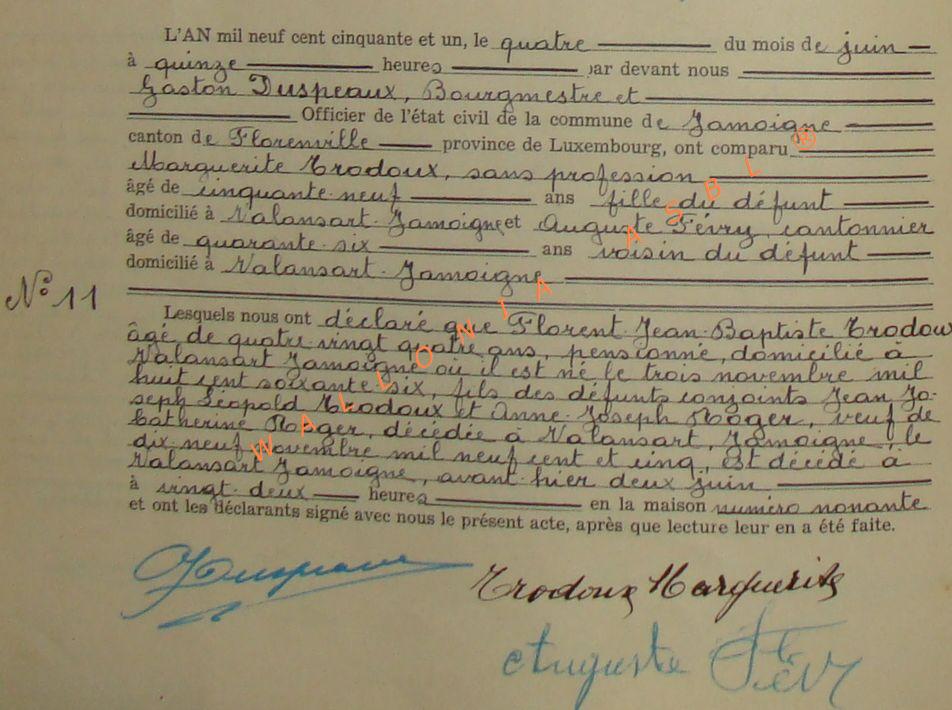 L'AN mil neuf cent cinquante et un, le quatre du mois de juin
à quinze heures par devant nous
Gaston Duspeaux, Bourgmestre et
Officier de l'état civil de la commune de Jamoigne
canton de Florenville province de Luxembourg, ont comparu
Marguerite Trodoux, sans profession
âgé de cinquante-neuf ans fille du défunt
domicilié à Valansart-Jamoigne et Auguste Févry, cantonnier
âgé de quarante-six ans voisin du défunt
domicilié à Valansart-Jamoigne
N° 11
Lesquels nous ont déclaré que Florent-Jean-Baptiste Trodoux
âgé de quatre vingt quatre ans, pensionné, domicilié à
Valansart Jamoigne où il est né le trois novembre mil
huit cent soixante-six, fils des défunts conjoints Jean Jo-
seph Léopold Trodoux et Anne-Joseph Roger, veuf de
Catherine Roger, décédée à Valansart, Jamoigne, le
dix-neuf novembre mil neuf cent et cinq, est décédé à
Valansart Jamoigne, avant-hier deux juin
à vingt-deux heures en la maison numéro nonante
et ont les déclarants signé avec nous le présent acte, après que lecture leur en a été faite.
GDuspeaux
Trodoux Marguerite
Auguste Févry
WALLONIA ASBL ®